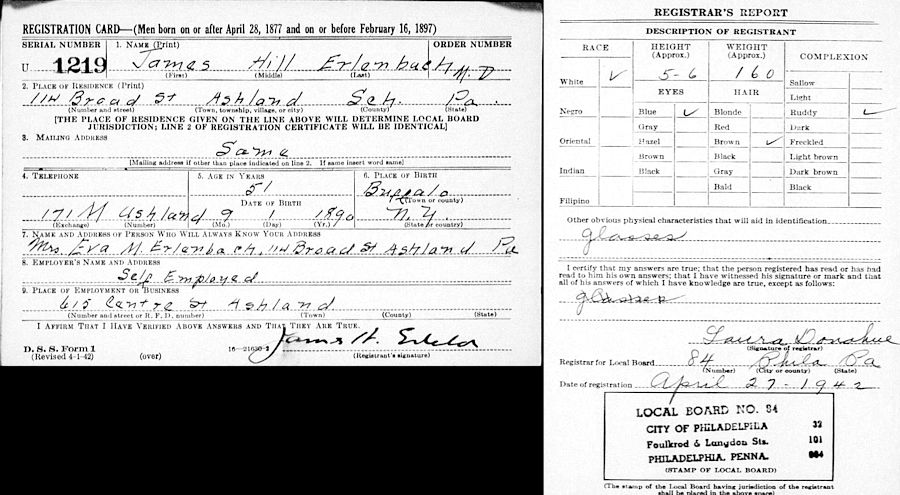 REGISTRATION CARD—(Men born on or after April 28, 1877 and on or before February 16, 1897)
SERIAL NUMBER 1. NAME (Print) ORDER NUMBER
U 1219 James Hill Erlenbach M. D
(First) (Middle) (Last)
2. PLACE OF RESIDENCE (Print)
114 Broad St Ashland Sch. Pa.
(Number and street) (Town, township, village, or city) (County) (State)
[THE PLACE OF RESIDENCE GIVEN ON THE LINE ABOVE WILL DETERMINE LOCAL BOARD
JURISDICTION; LINE 2 OF REGISTRATION CERTIFICATE WILL BE IDENTICAL]
3. MAILING ADDRESS
Same
[Mailing address if other than place indicated on line 2. If same insert word same]
4. TELEPHONE 5. AGE IN YEARS 6. PLACE OF BIRTH
51 Buffalo
DATE OF BIRTH (Town or county)
171 M Ashland 9 1 1890 N. Y.
(Exchange) (Number) (Mo.) (Day) (Yr.) (State or country)
7. NAME AND ADDRESS OF PERSON WHO WILL ALWAYS KNOW YOUR ADDRESS
Mrs. Eva M. Erlenbach, 114 Broad St Ashland Pa
8. EMPLOYER'S NAME AND ADDRESS
Self Employed
9. PLACE OF EMPLOYMENT OR BUSINESS
615 Centre St Ashland
(Number and street or R. F. D. number) (Town) (County) (State)
I AFFIRM THAT I HAVE VERIFIED ABOVE ANSWERS AND THAT THEY ARE TRUE.
D. S. S. Form 1 16—21630-2 James H.
(Revised 4-1-42) (over) (Registrant's signature)
REGISTRAR'S REPORT
DESCRIPTION OF REGISTRANT
RACE HEIGHT (Approx.) WEIGHT (Approx.) COMPLEXION
White ✓ 5-6 160 Sallow
EYES HAIR Light
Negro Blue ✓ Blonde Ruddy ✓
Gray Red Dark
Oriental Hazel Brown ✓ Freckled
Brown Black Light brown
Indian Black Gray Dark brown
Bald Black
Filipino
Other obvious physical characteristics that will aid in identification
glasses
I certify that my answers are true; that the person registered has read or has had
read to him his own answers; that I have witnessed his signature or mark and that
all of his answers of which I have knowledge are true, except as follows:
glasses
Laura Donahue
(Signature of registrar)
Registrar for Local Board 84 Phila Pa
(Number) (City or county) (State)
Date of registration April 27-1942
LOCAL BOARD NO. 84
CITY OF PHILADELPILA 32
Foulkrod & Langdon Sts. 101
PHILADELPHIA, PENNA. 084
(STAMP OF LOCAL BOARD)
(The stamp of the Local Board having jurisdiction of the registrant
shall be placed in the above space)